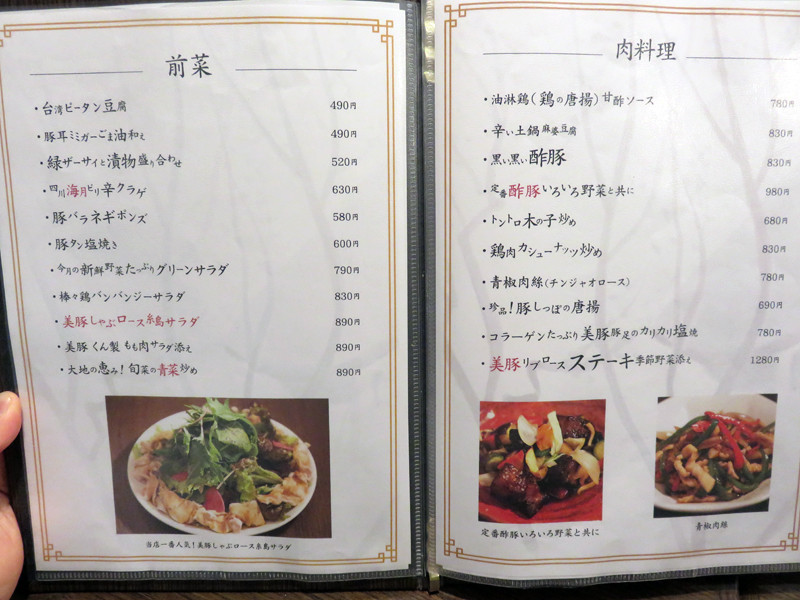 前菜
・台湾ピータン豆腐 490円
・豚耳ミミガーごま油和え 490円
・緑ザーサイと漬物盛り合わせ 520円
・四川海月ピリ辛クラゲ 630円
・豚バラネギポンズ 580円
・豚タン塩焼き 600円
・今月の新鮮野菜たっぷりグリーンサラダ 790円
・棒々鶏バンバンジーサラダ 830円
・美豚しゃぶロース糸島サラダ 890円
・美豚くん製もも肉サラダ添え 890円
・大地の恵み!旬菜の青菜炒め 890円
当店一番人気!美豚しゃぶロース糸島サラダ
肉料理
・油淋鶏(鶏の唐揚)甘酢ソース 780円
・辛い土鍋麻婆豆腐 830円
・黒い黒い酢豚 830円
・定番酢豚いろいろ野菜と共に 980円
・トントロ木の子炒め 680円
・鶏肉カシューナッツ炒め 830円
・青椒肉絲(チンジャオロース) 780円
・珍品!豚しっぽの唐揚 690円
・コラーゲンたっぷり美豚豚足のカリカリ塩焼 780円
・美豚リブロースステーキ季節野菜添え 1280円
定番酢豚いろいろ野菜と共に
青椒肉絲